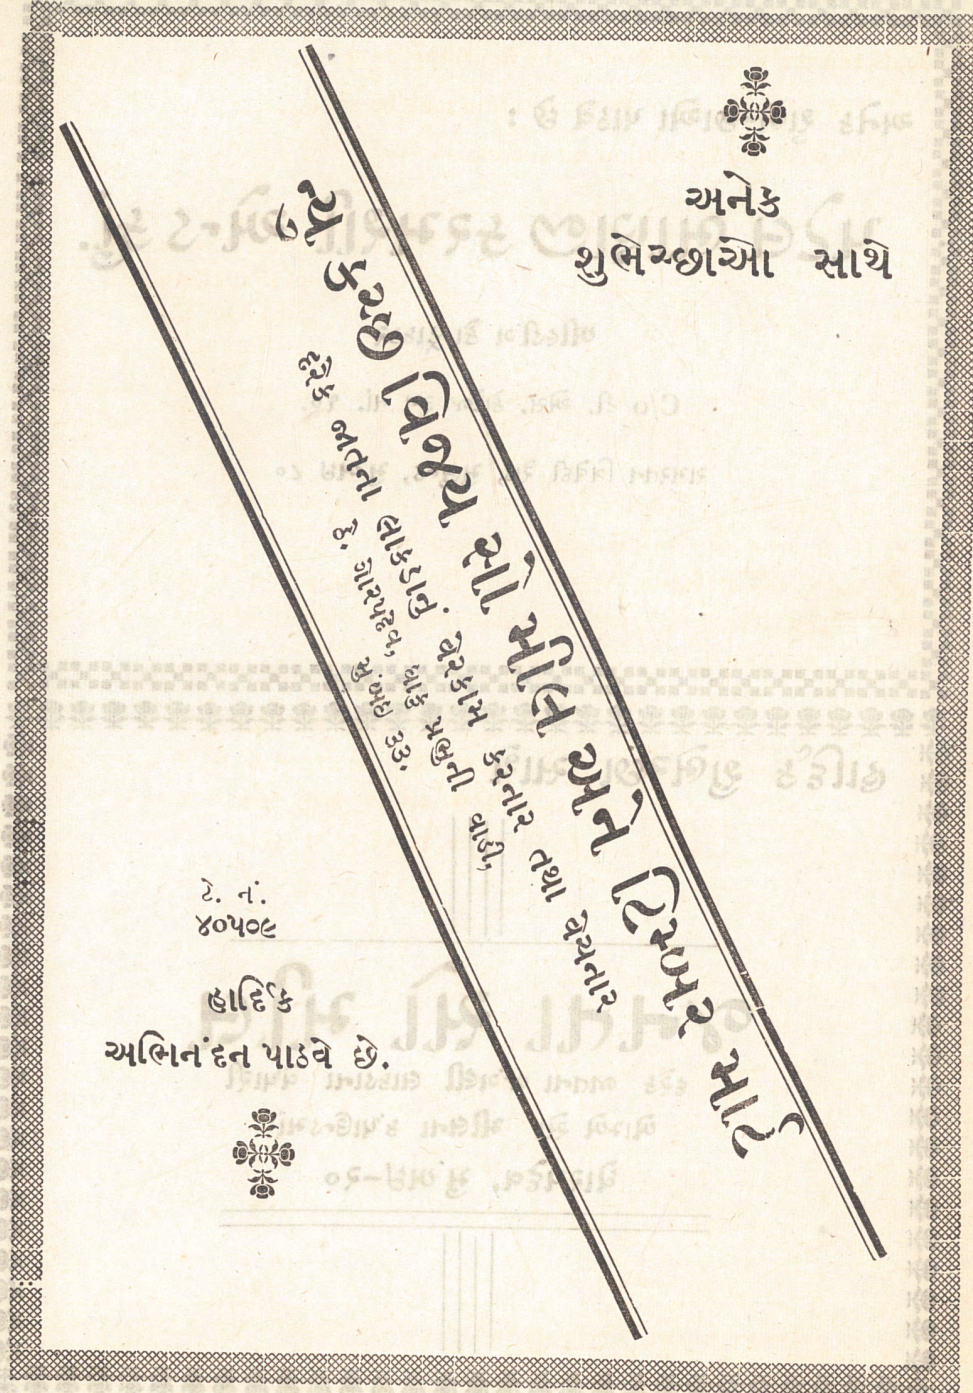 અનેક
શુભેચ્છાઓ સાથે
ન્યુ કચ્છ વિજય સો મીલ અને ટિમ્બર માર્ટ
દરેક જાતના લાકડાનું વેરકામ કરનાર તથા વેચનાર
ઠે. ઘોરપદેવ, ધાકુ પ્રભુની વાડી,
મુંબઈ ૩૩.
ટે. નં.
૪૦૫૦૯
હાર્દિક
અભિનંદન પાઠવે છે.